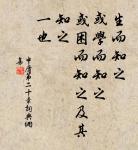 生而知之
或學而知之
或困而知之及其
知之
一也
中庸第二十章